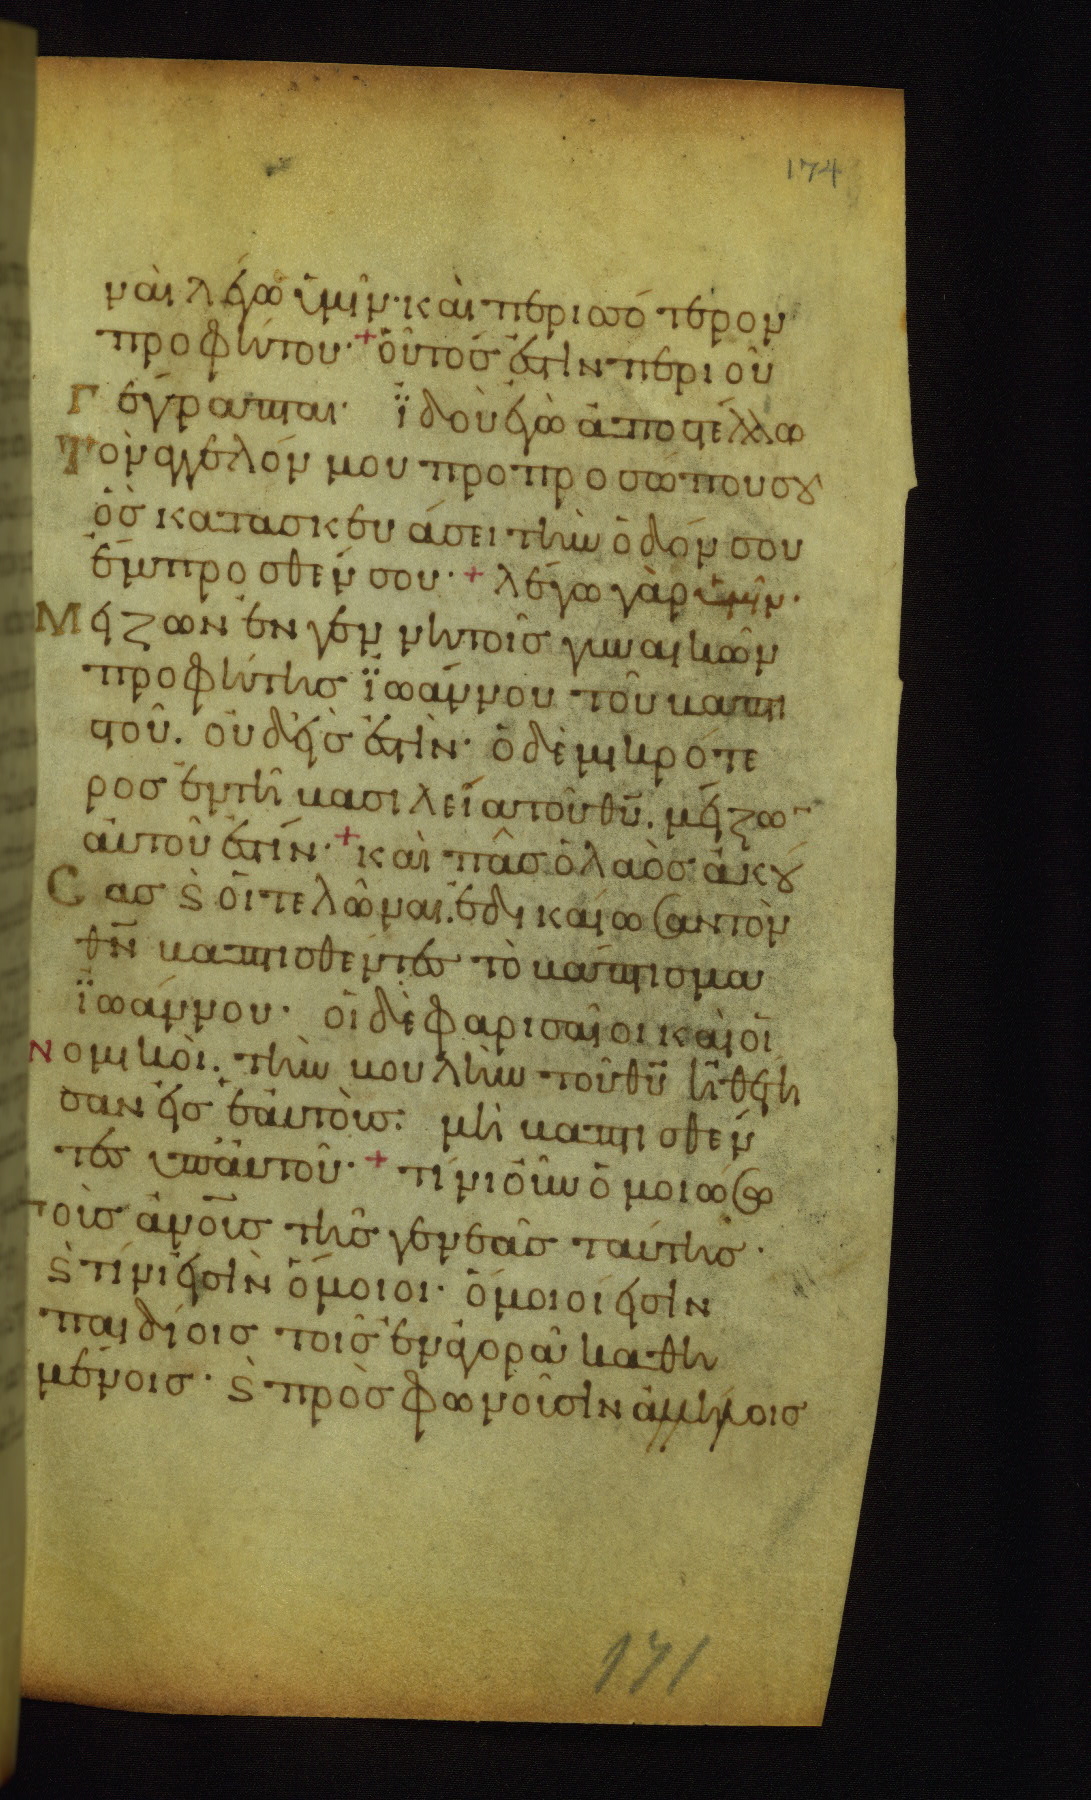 174
ναὶ λέγω ὑμῖν· καὶ περισσότερον
προφήτου· + οὗτός ἐστιν περὶ οὗ
γέγραπται· ἰδοὺ ἐγὼ ἀποστέλλω
τὸν ἄγγελόν μου πρὸ προσώπου σου
ὃς κατασκευάσει τὴν ὁδόν σου
ἔμπροσθέν σου· + λέγω γὰρ ὑμῖν·
Μείζων ἐν γεννητοῖς γυναικῶν
προφήτης ϊωάννου τοῦ βαπτι
στοῦ. οὐδείς ἐστὶν· ὁ δὲ μικρότε
ρος ἐν τῆ βασιλεία τοῦ θῦ. μείζω̄
αὐτοῦ ἐστίν· + καὶ πᾶς ὁ λαὸς ἀκού
Σας ϗ οἱ τελῶναι. ἐδικαίωσαν τὸν
θν̄ βαπτισθέντες τὸ βάπτισμα
ϊωάννου· οἱ δὲ φαρισαῖοι καὶ οἱ
νομικοὶ. τὴν βουλὴν τοῦ θῦ ἠθέτη
σαν εἰς ἑαυτούς· μὴ βαπτισθέν
τες ὑπ' αὐτοῦ· + τίνι οὖν ὁμοιώσω
τοὺς ἀνο̄υς τῆς γενεᾶς ταύτης·
ϗ τίνι εἰσὶν ὅμοιοι· ὅμοιοί εἰσιν
παιδίοις τοῖς ἐν ἀγορᾶ καθη
μένοις· ϗ προσφωνοῦσιν ἀλλήλοις
171